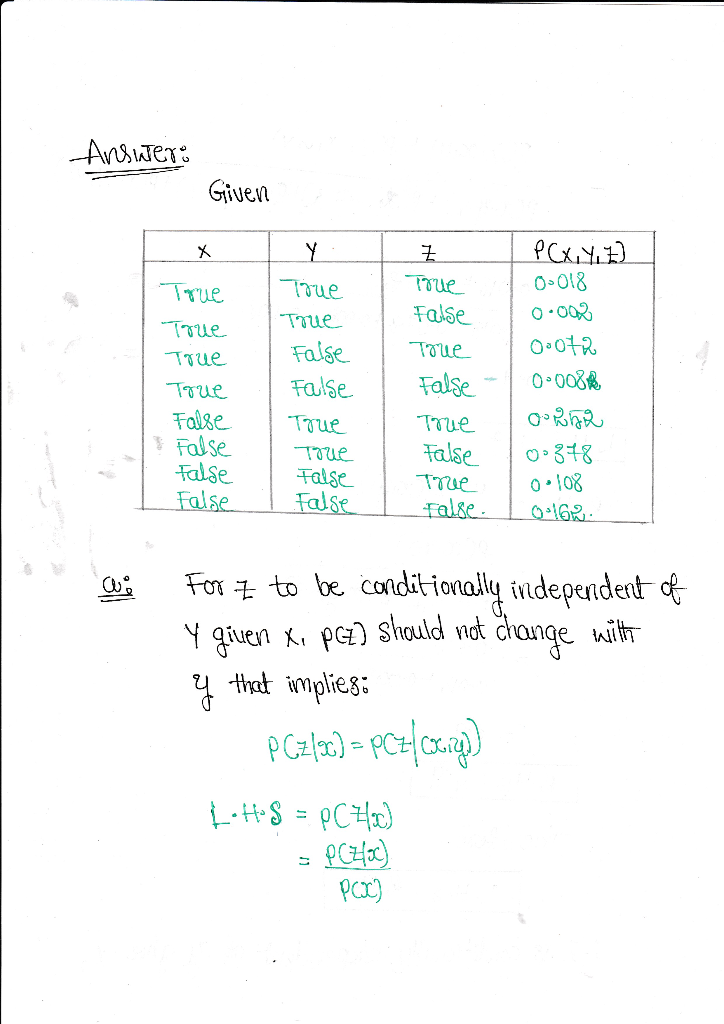 Answer:
Given
X Y Z P(X,Y,Z)
True True True 0.018
True True False 0.002
True False True 0.072
True False False 0.008
False True True 0.252
False True False 0.378
False False True 0.108
False False False. 0.162.
a: For Z to be conditionally independent of
Y given X, P(Z) should not change with
y that implies:
P(Z/x) = P(Z/(x,y))
L.H.S = P(Z/x)
= P(Z/x)
P(x)